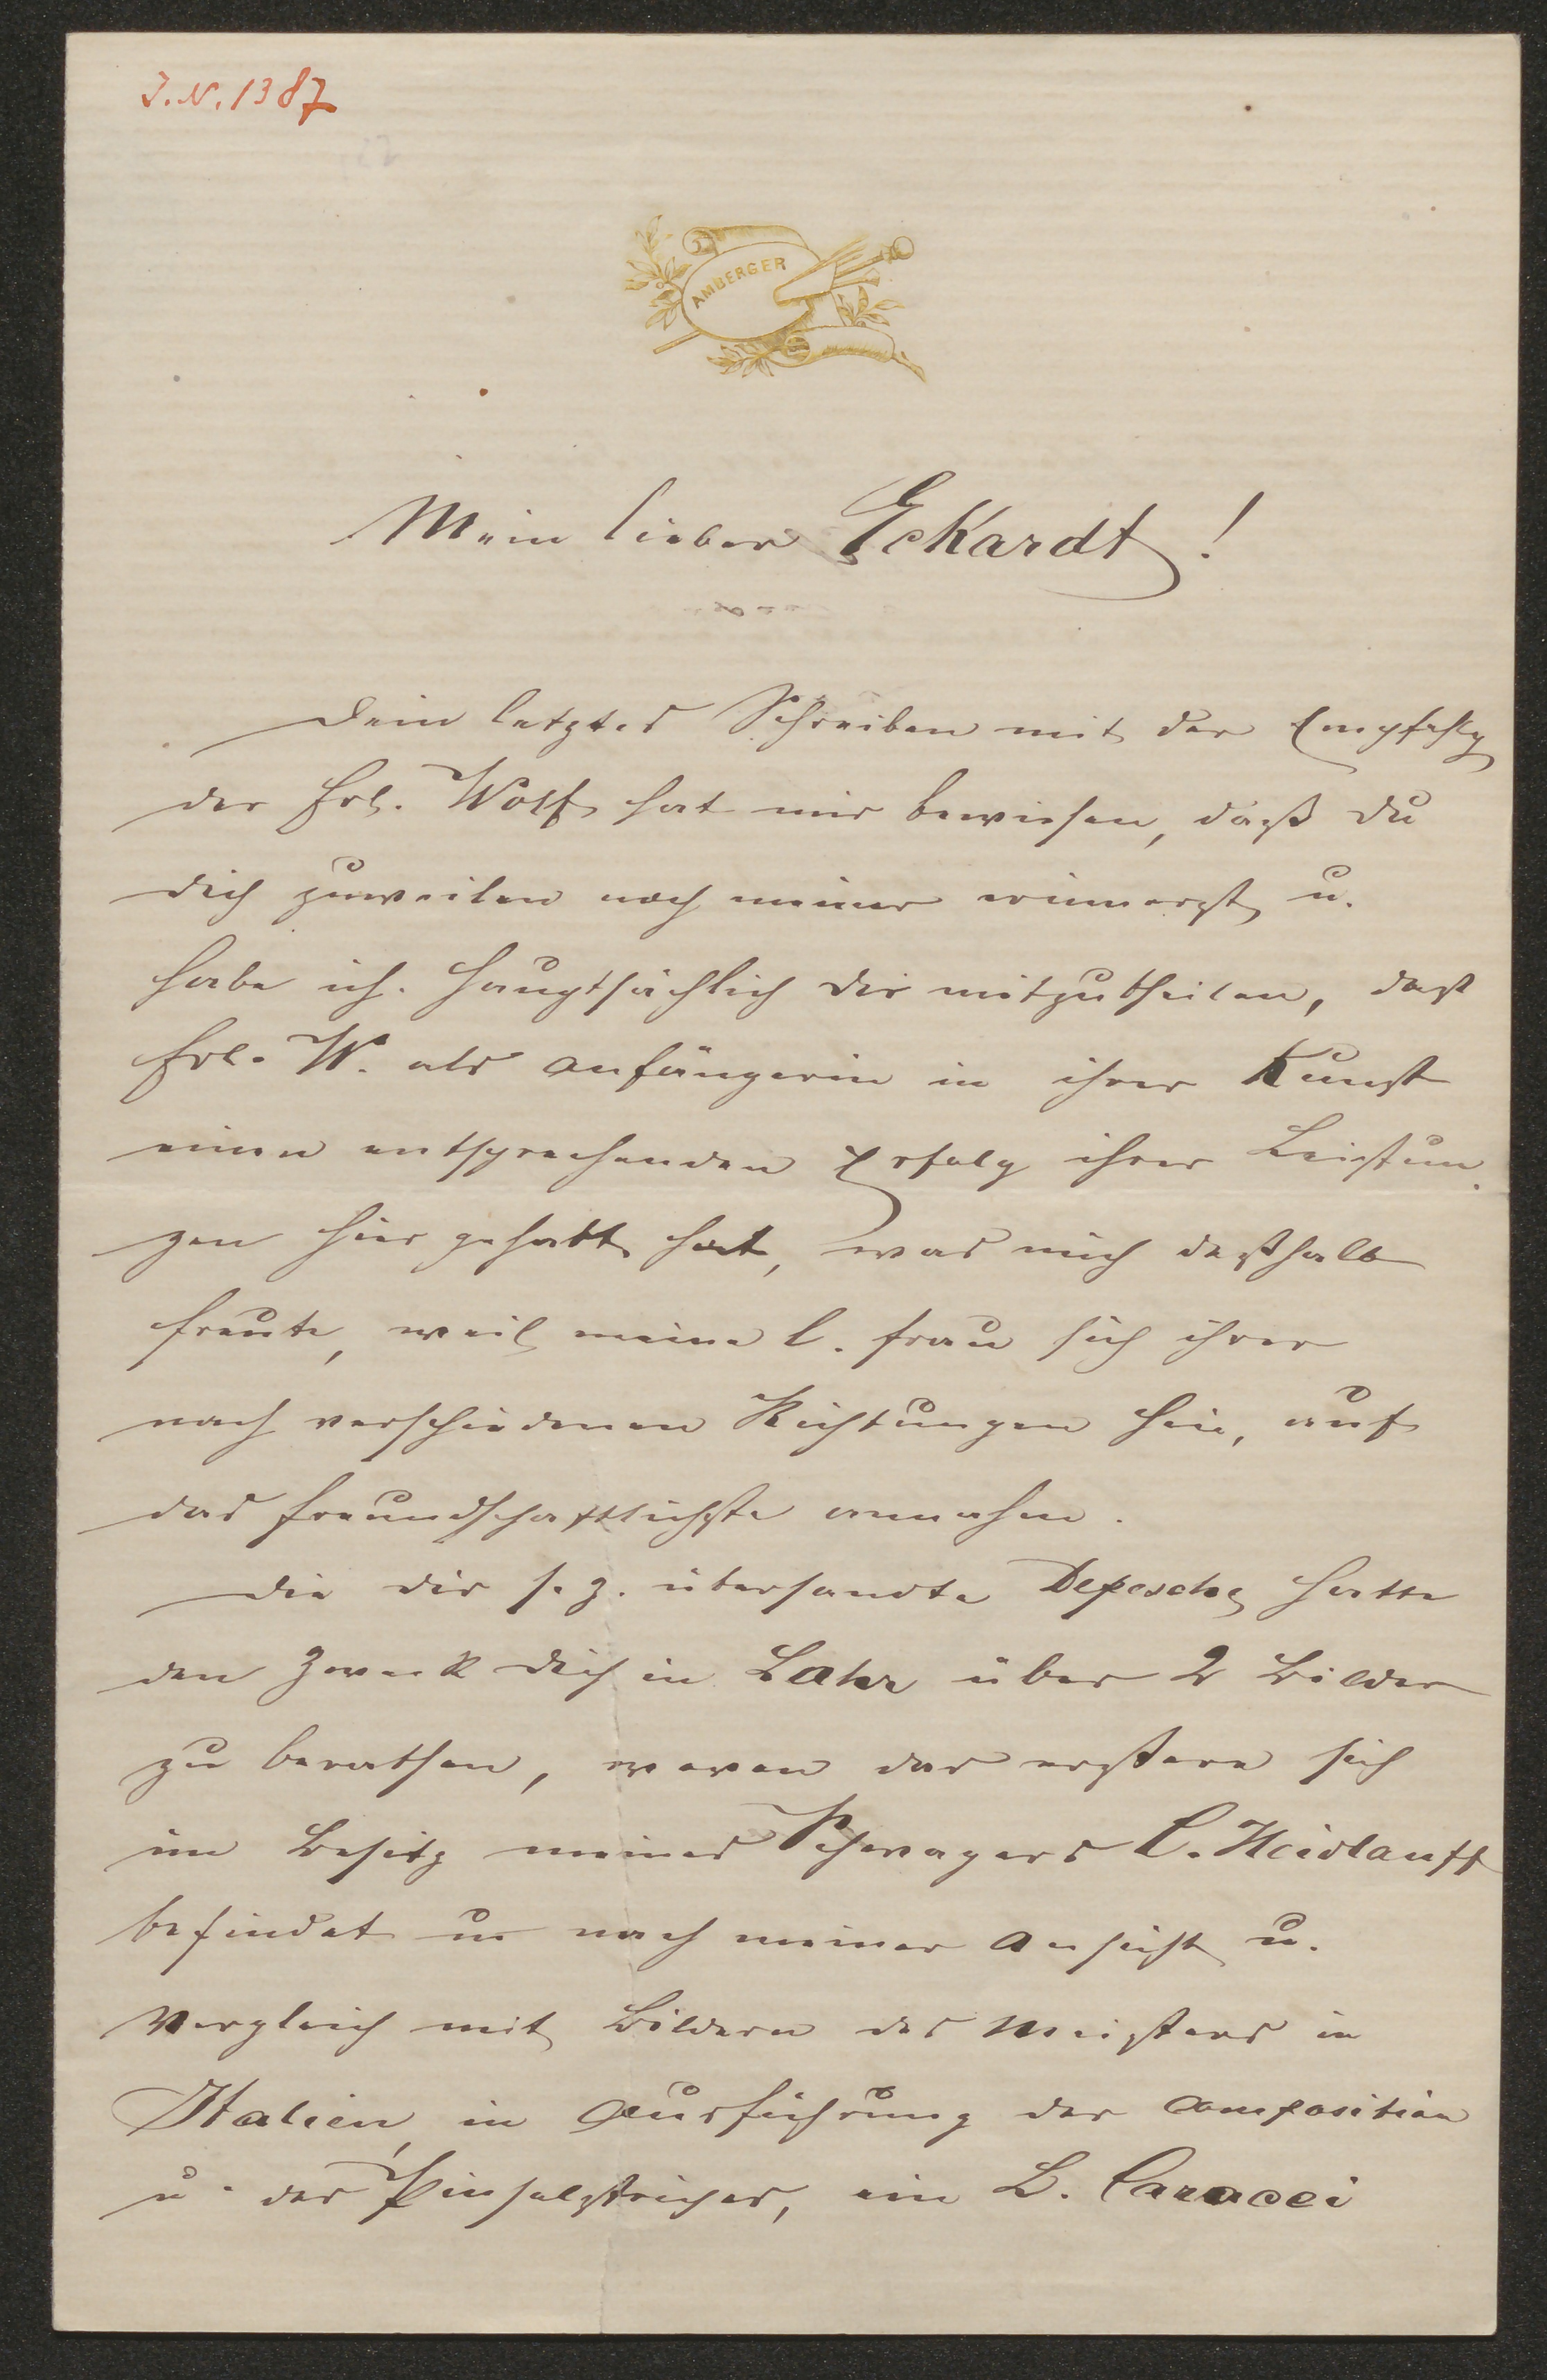 J.N. 1387
AMBERGER
Mein lieber Eckardt!
Dein letztes Schreiben mit der Empfehlg
der Frl. Wolf hat mir bewiesen, daß Du
Dich zuweilen noch meiner erinnerst, u.
habe ich hauptsächlich Dir mitzutheilen, daß
Frl. W. als Anfängerin in ihrer Kunst
einen entsprechenden Erfolg ihrer Leistun
gen hier gehabt hat, was mich deßhalb
freute, weil meine l. Frau sich ihrer
nach verschiedenen Richtungen hin, auf
das freundschaftlichste annahm.
Die Dir s. z. übersandte Depesche hatte
den Zweck Dich in Lahr über 2 Bilder
zu berathen, wovon das erstere sich
im Besitz meines Schwagers C. Heidlauff
befindet u. nach meiner Ansicht u.
Vergleich mit Bildern des Meisters in
Italien, in Ausführung der Composition
u. des Pinselstriches, ein L. Caracci